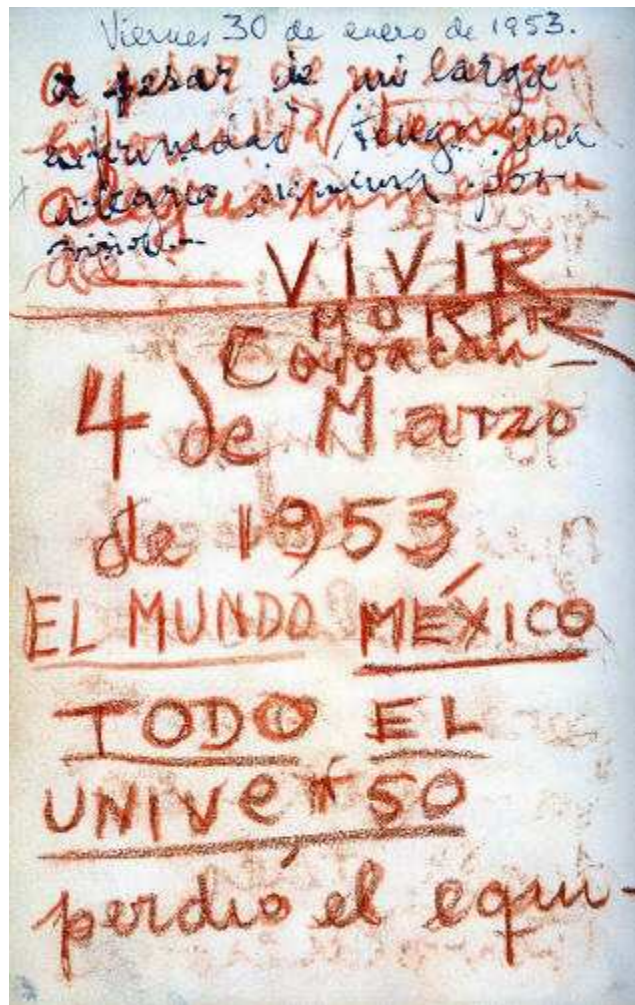 Viernes 30 de enero de 1953.
a pesar de mi larga
enfermedad tengo una
alegria inmensa por
VIVIR
MORIR
Coyoacan –
4 de Marzo
de 1953
EL MUNDO MÉXICO
TODO EL
UNIVeRSO
perdió el equi-